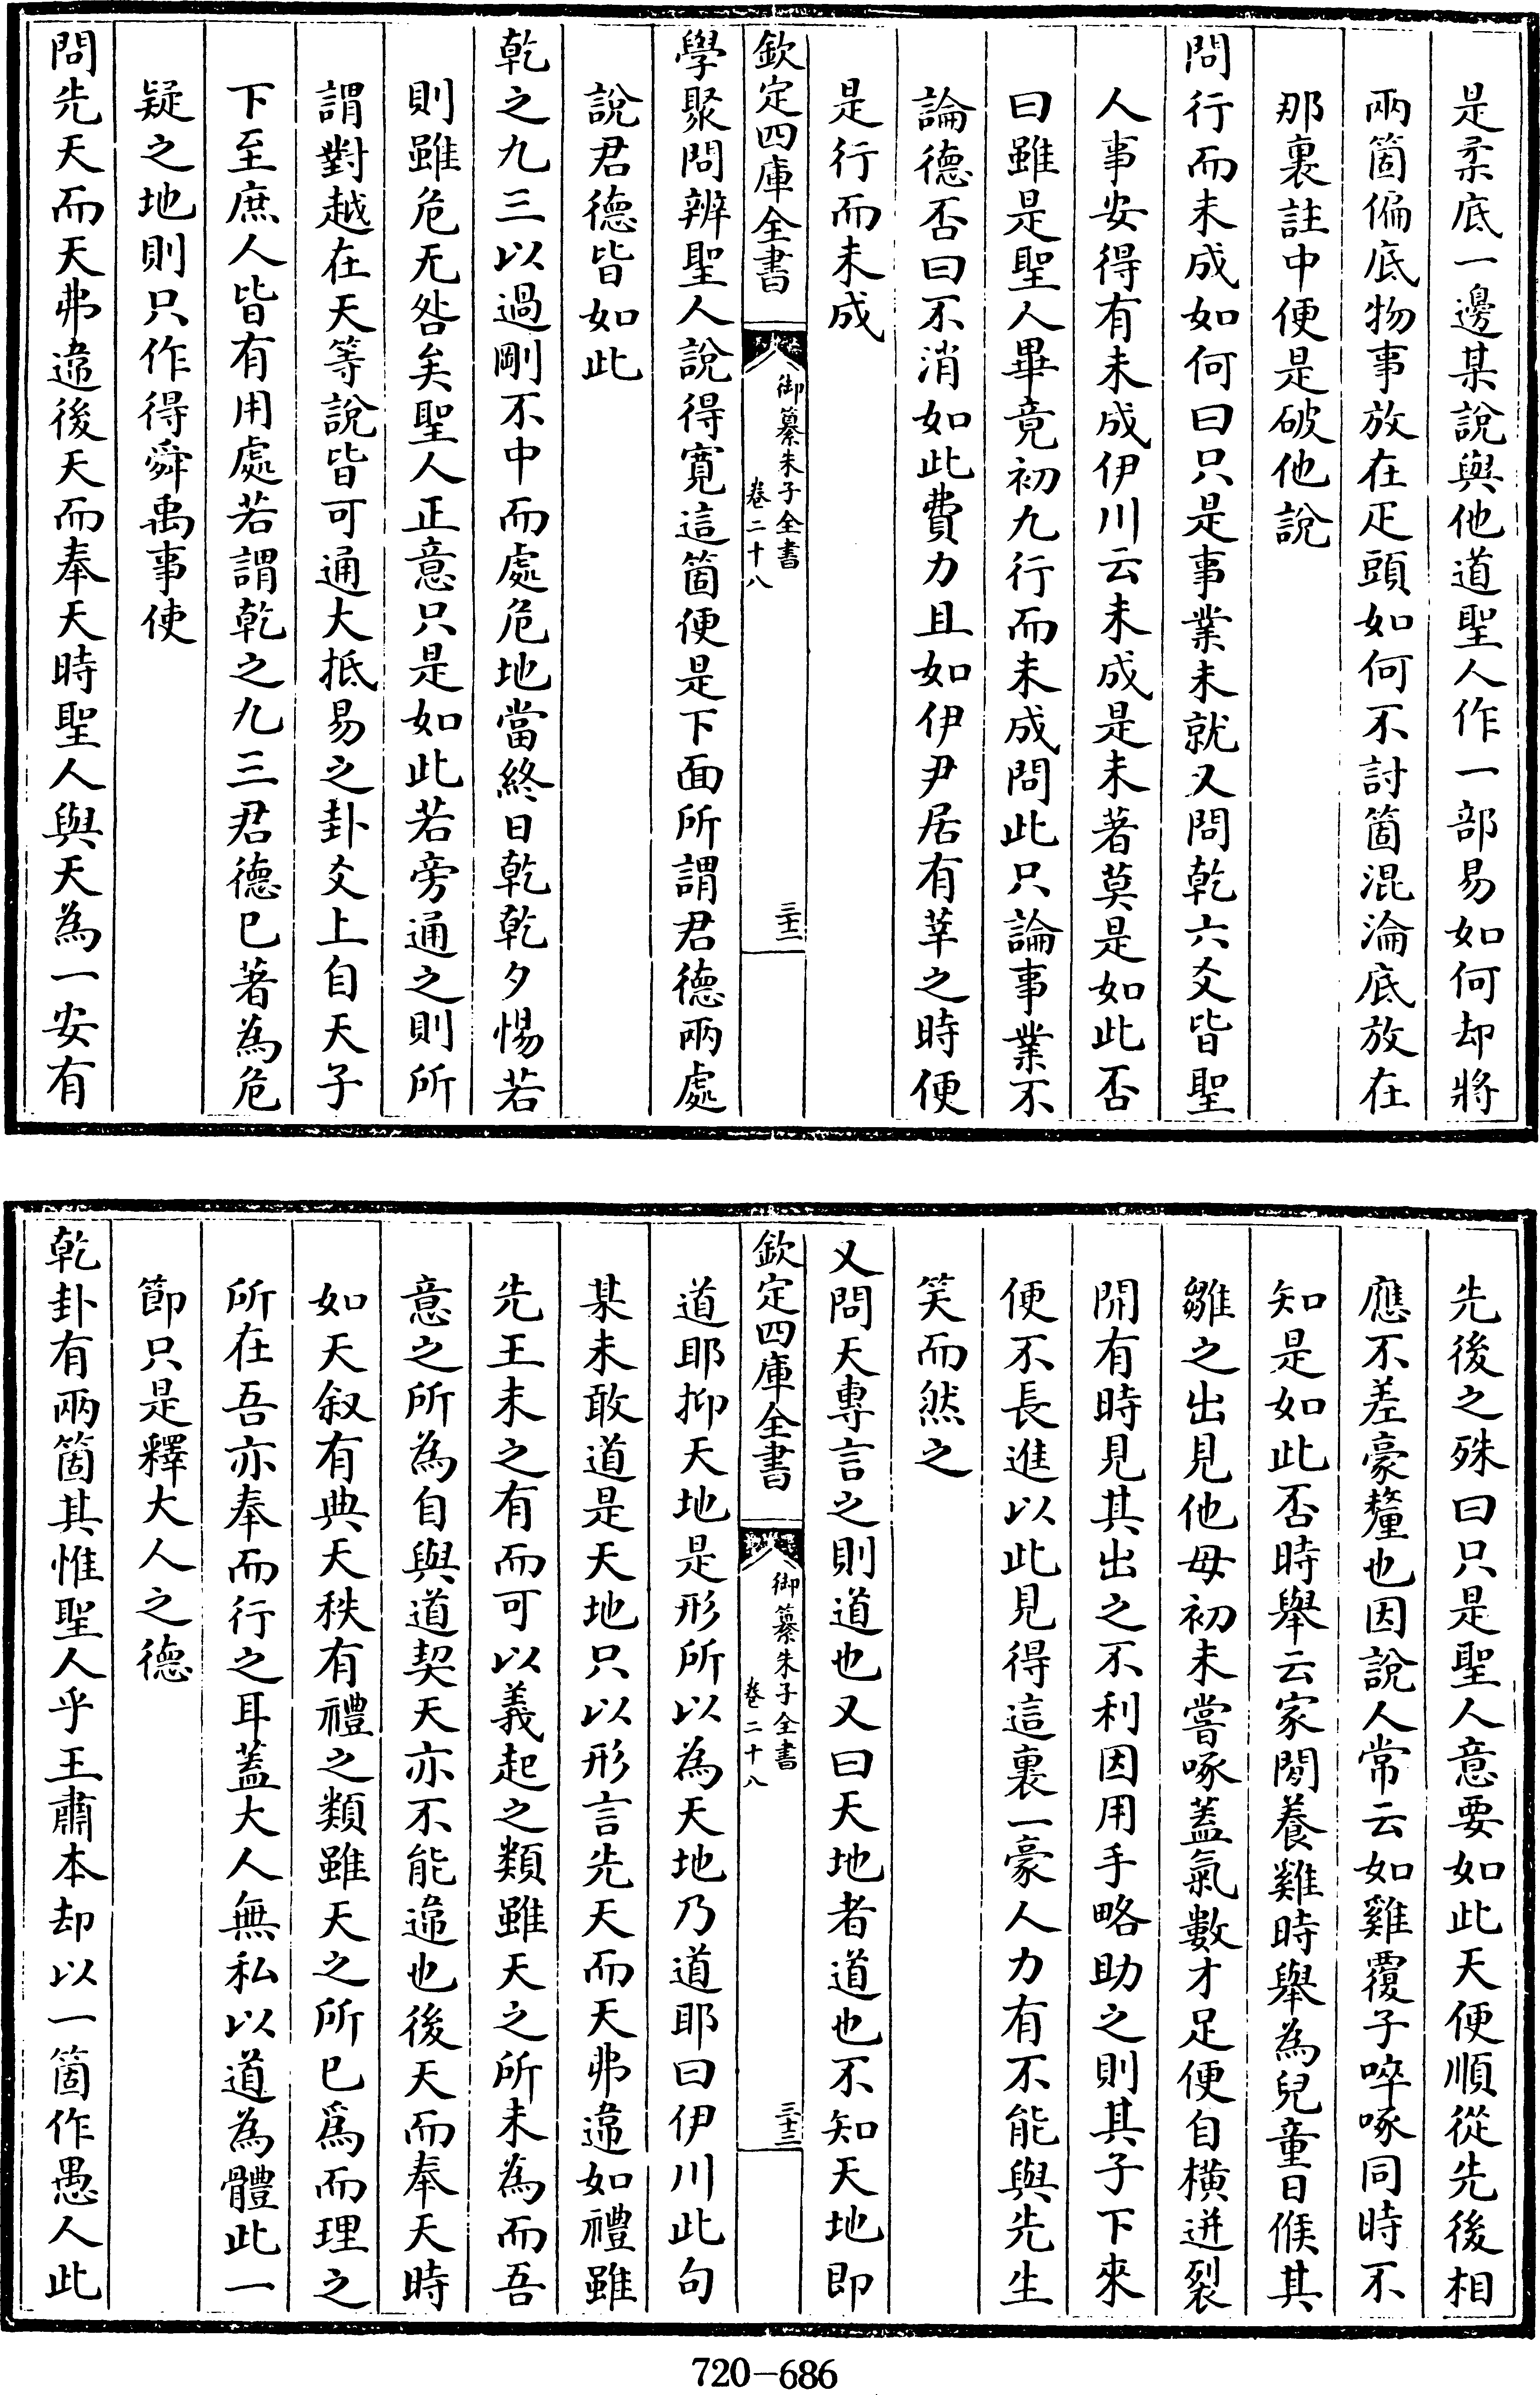 是柔底一邊某說與他道聖人作一部易如何却將
兩箇偏底物事放在疋頭如何不討箇混淪底放在
那裏註中便是破他說
問行而未成如何曰只是事業未就又問乾六爻皆聖
人事安得有未成伊川云未成是未著莫是如此否
曰雖是聖人畢竟初九行而未成問此只論事業不
論德否曰不消如此費力且如伊尹居有莘之時便
是行而未成
欽定四庫全書
御纂朱子全書
卷二十八
三十二
學聚問辨聖人說得寬這箇便是下面所謂君德兩處
說君德皆如此
乾之九三以過剛不中而處危地當終日乾乾夕惕若
則雖危无咎矣聖人正意只是如此若旁通之則所
謂對越在天等說皆可通大抵易之卦爻上自天子
下至庶人皆有用處若謂乾之九三君德已著為危
疑之地則只作得舜禹事使
問先天而天弗違後天而奉天時聖人與天為一安有
先後之殊曰只是聖人意要如此天便順從先後相
應不差豪釐也因說人常云如雞覆子啐啄同時不
知是如此否時舉云家間養雞時舉為兒童日候其
雛之出見他母初未嘗啄蓋氣數才足便自橫迸裂
開有時見其出之不利因用手略助之則其子下來
便不長進以此見得這裏一豪人力有不能與先生
笑而然之
又問天專言之則道也又曰天地者道也不知天地即
欽定四庫全書
御纂朱子全書
卷二十八
三十三
道耶抑天地是形所以為天地乃道耶曰伊川此句
某未敢道是天地只以形言先天而天弗違如禮雖
先王未之有而可以義起之類雖天之所未為而吾
意之所為自與道契天亦不能違也後天而奉天時
如天叙有典天秩有禮之類雖天之所已為而理之
所在吾亦奉而行之耳蓋大人無私以道為體此一
節只是釋大人之德
乾卦有兩箇其惟聖人乎王肅本却以一箇作愚人此
720-686